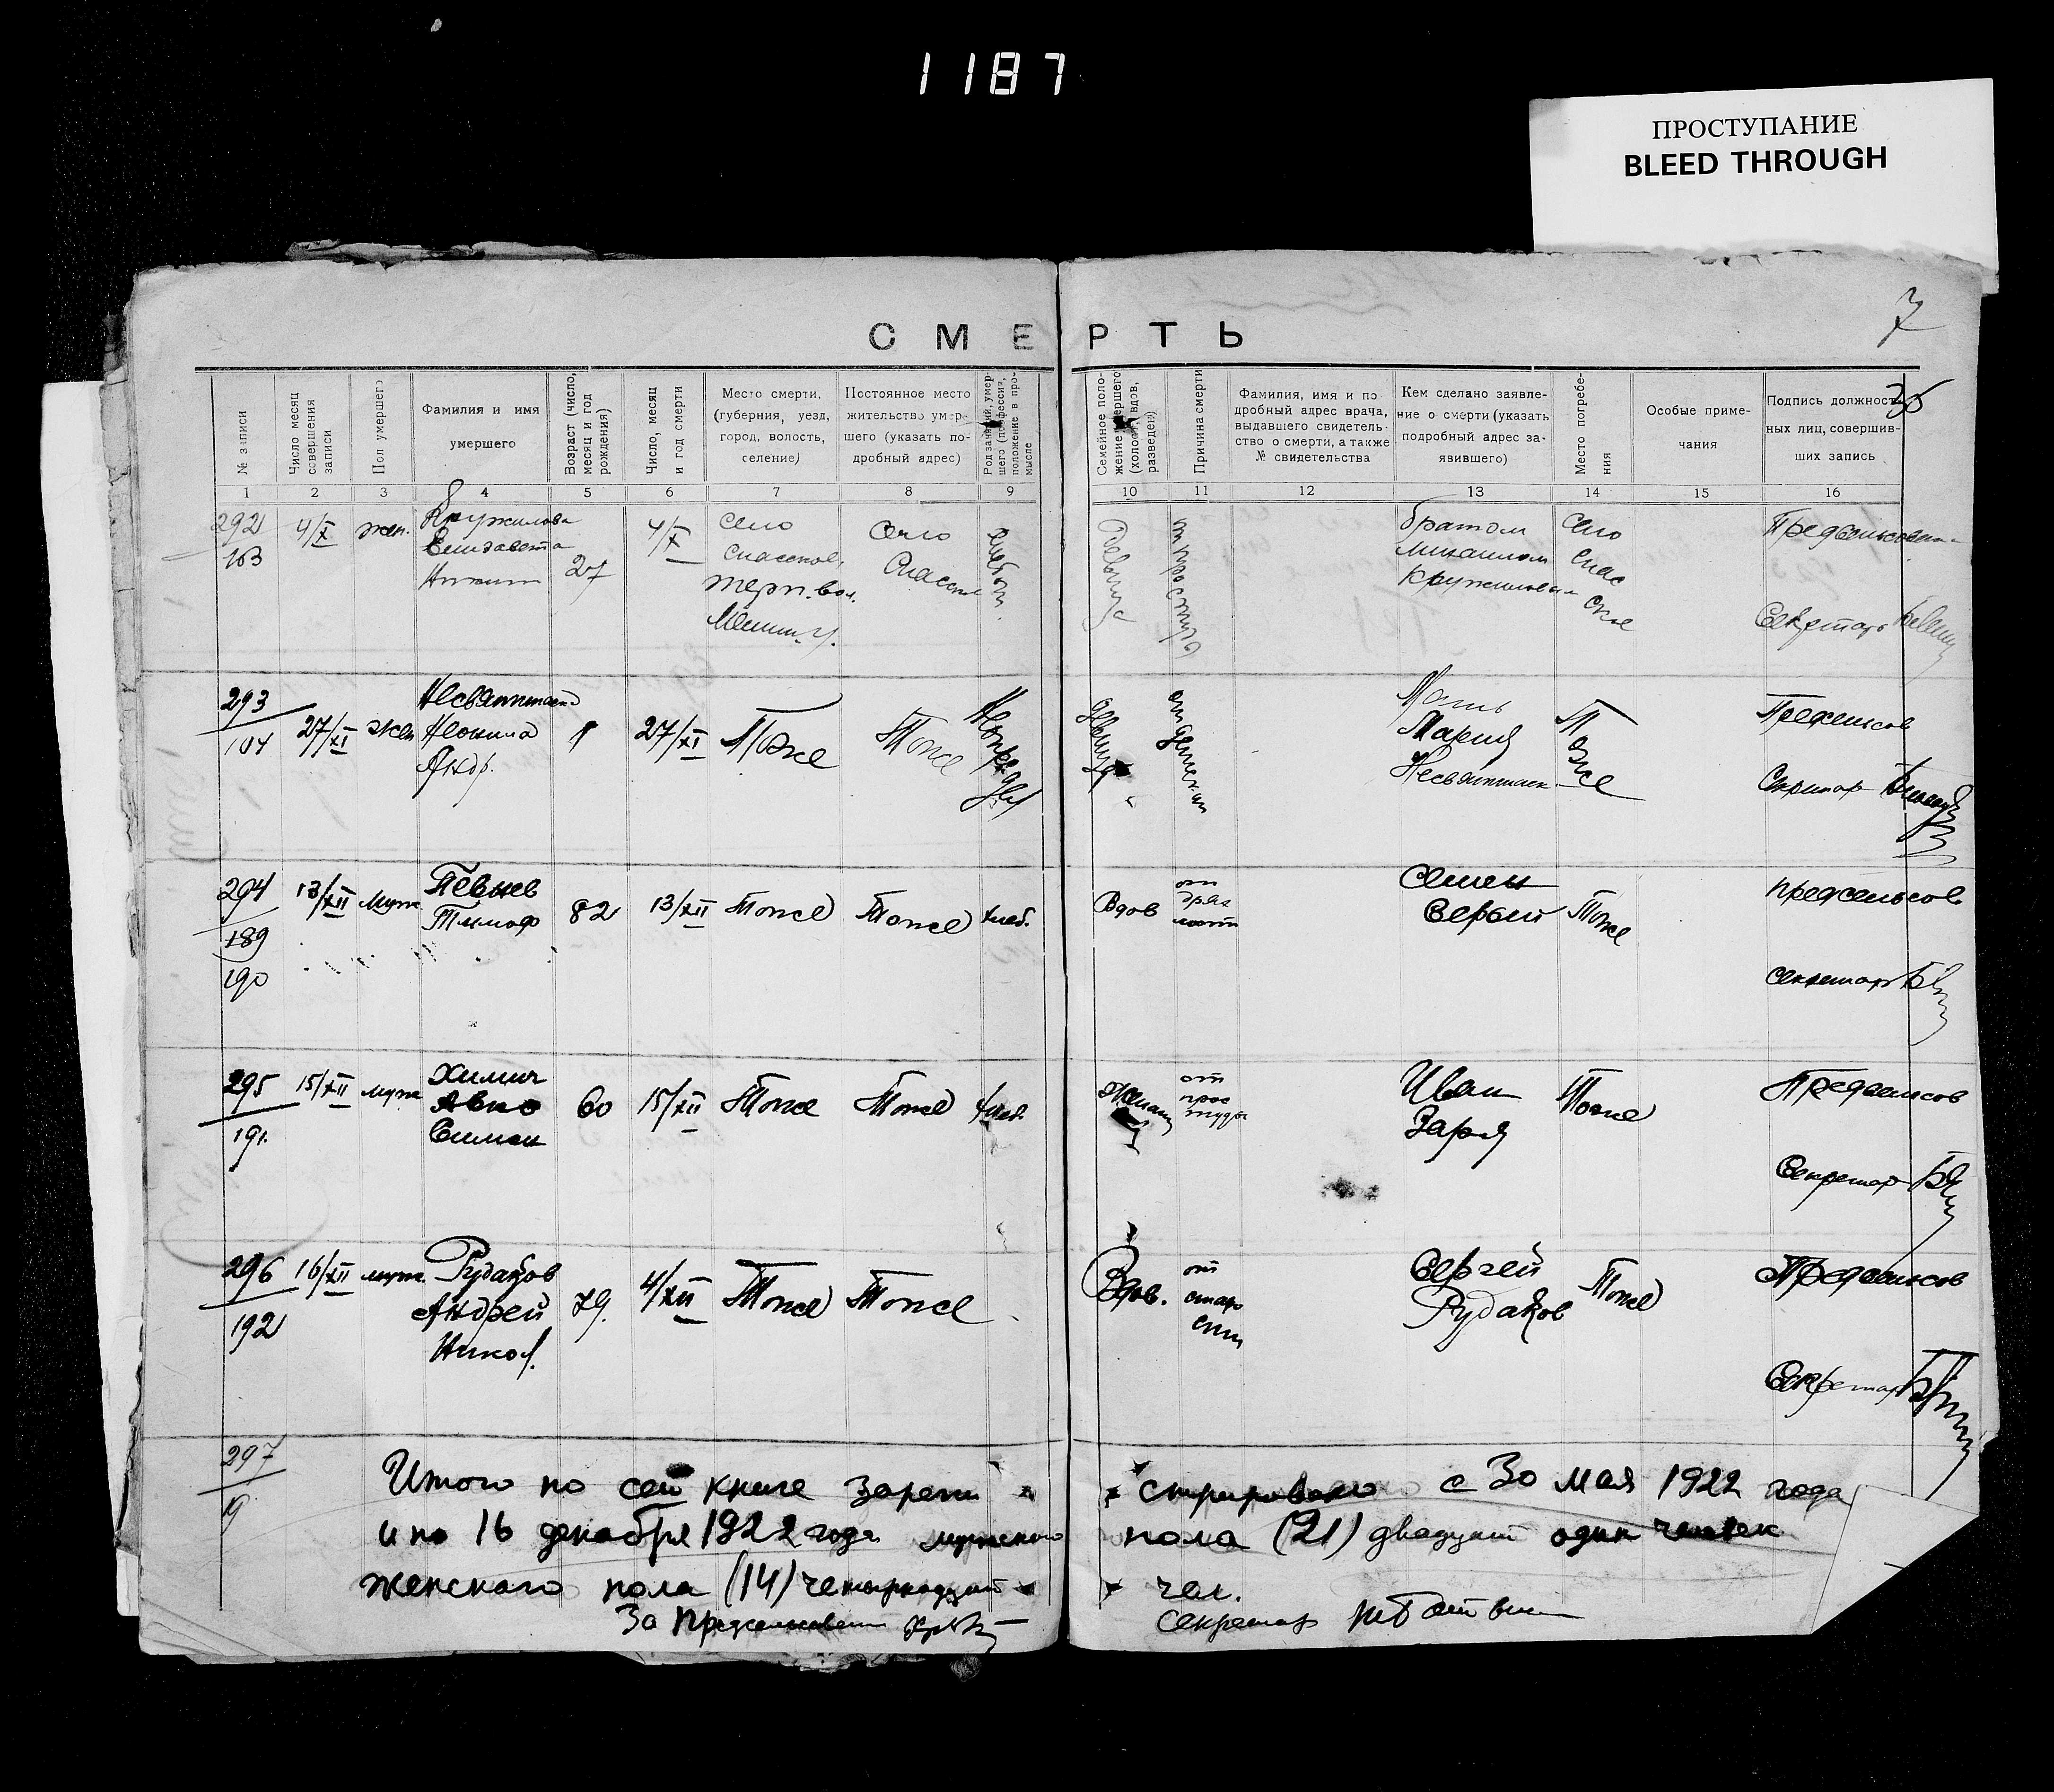 1187
ПРОСТУПАНИЕ
BLEED THROUGH
7
СМЕРТЬ
36
№ записи
Число месяц совершения записи
Пол умершего
Фамилия и имя умершего
Возраст (число, месяц и год рождения)
Число, месяц и год смерти
Место смерти, (губерния, уезд, город, волость, селение)
Постоянное место жительство умершего (указать подробный адрес)
Род занятий, умершего (профессия, положение в промысле
Семейное положение умершего (холост, вдов, разведен)
Причина смерти
Фамилия, имя и подробный адрес врача, выдавшего свидетельство о смерти, а также № свидетельства
Кем сделано заявление о смерти (указать подробный адрес заявившего)
Место погребения
Особые примечания
Подпись должностных лиц, совершивших запись
1 2 3 4 5 6 7 8 9 10 11 12 13 14 15 16
292
163
4/X
жен.
Кружилова
Елизавета
27
4/X
село
Спасское,
терп. вол.
Мелит. у.
Село
Спасское
девица
от простуды
братом
Михаилом
Кружиловым
село
Спас
ское
Предсельсовета
Секретарь
293
27/XI
жен
Неонила
Андр.
27/XI
Тоже
Тоже
девица
Мать
Мария
Тоже
Предсельсов
Секретар
294
189
190
13/XII
муж
Певнев
Тимоф
82
13/XII
Тоже
Тоже
хлеб.
Вдов
от
дрях
лости
Семен
Серый
Тоже
предсельсов
секретарь
295
191.
15/XII
муж
Химич
Симон
60
15/XII
Тоже
Тоже
хлеб.
Женат
от
прос
туды
Иван
Заря
Тоже
Предсельсов
Секретар
296
192
16/XII
муж.
Рудаков
Андрей
Никол.
79.
4/XII
Тоже
Тоже
Вдов.
от
старо
сти
Сергей
Рудаков
Тоже
Предсельсов
Секретар
297
19
Итого по сей книге зареги стрировано с 30 мая 1922 года
и по 16 декабря 1922 года мужского пола (21) двадцат один человек
женского пола (14) четырнадцат чел.
За Предсельсовета
секретар